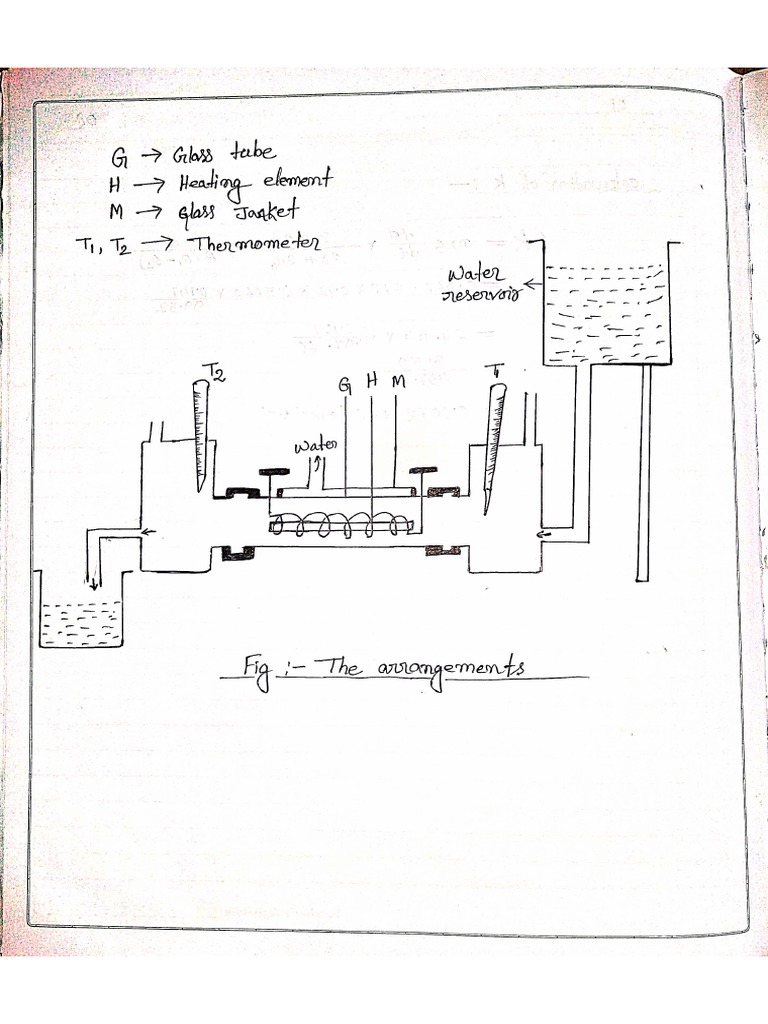 G → Glass tube
H → Heating element
M → Glass Jasket
T1, T2 → Thermometer
Water
reservoir
T2
G H M
T1
Water
Fig :- The arrangements